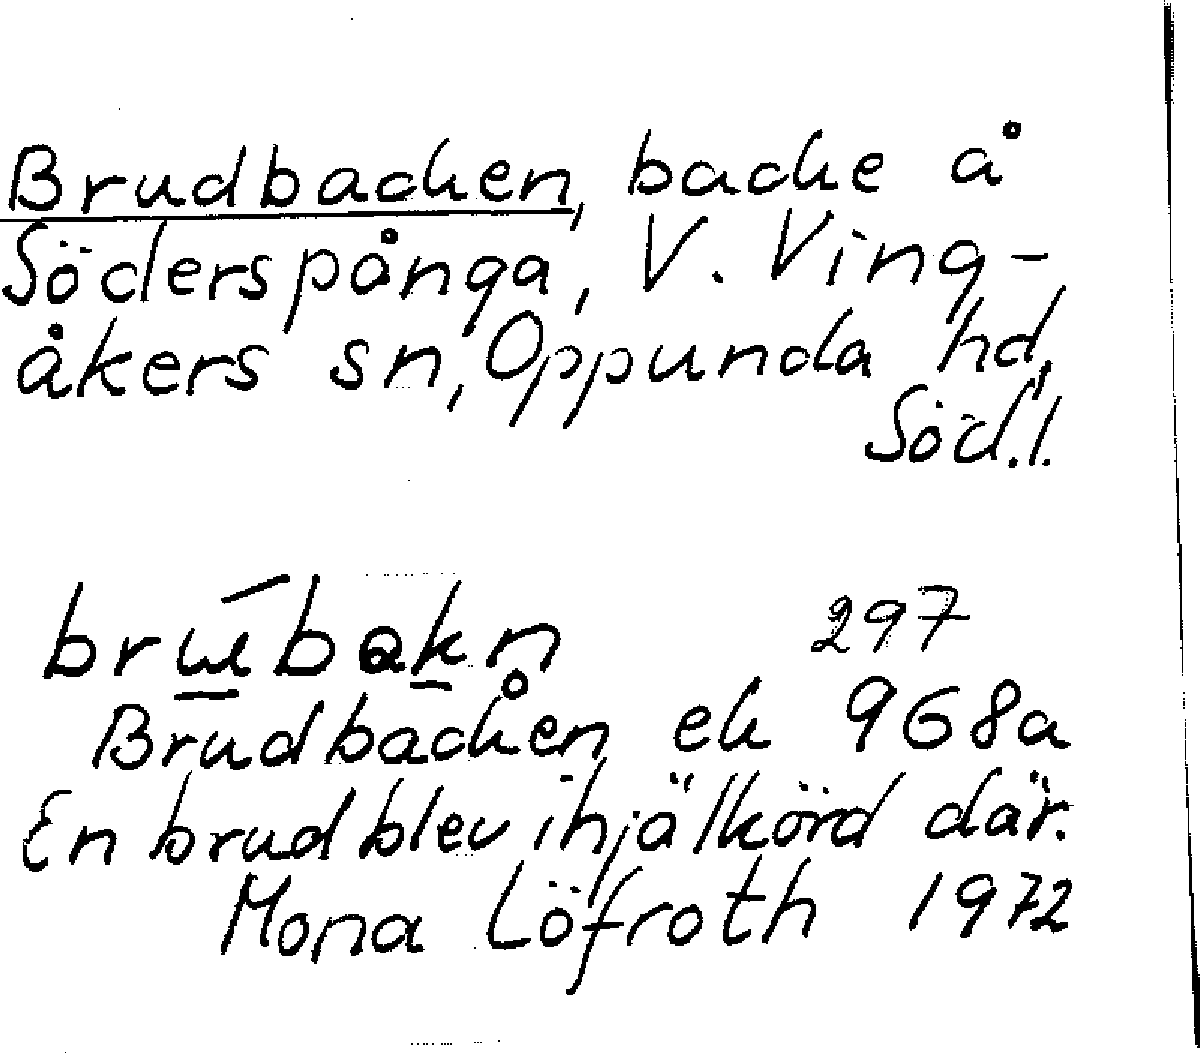 Brudbacken, backe å
Söderspånga, V. Ving-
åkers sn, Oppunda hd,
Söd.l.
297
Brudbacken ek 968a
En brud blev ihjälkörd där.
Mona Löfroth 1972